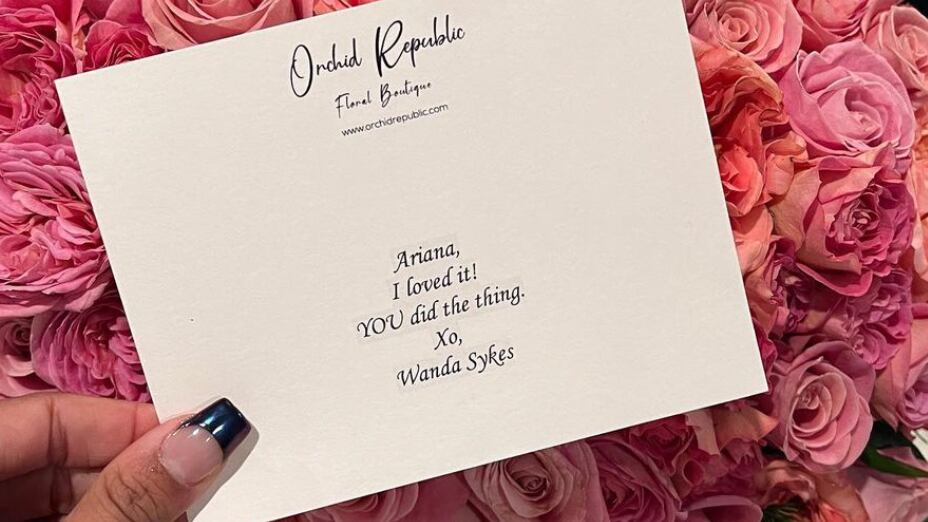 Orchid Republic
Floral Boutique
www.orchidrepublic.com
Ariana,
I loved it!
YOU did the thing.
Xo,
Wanda Sykes